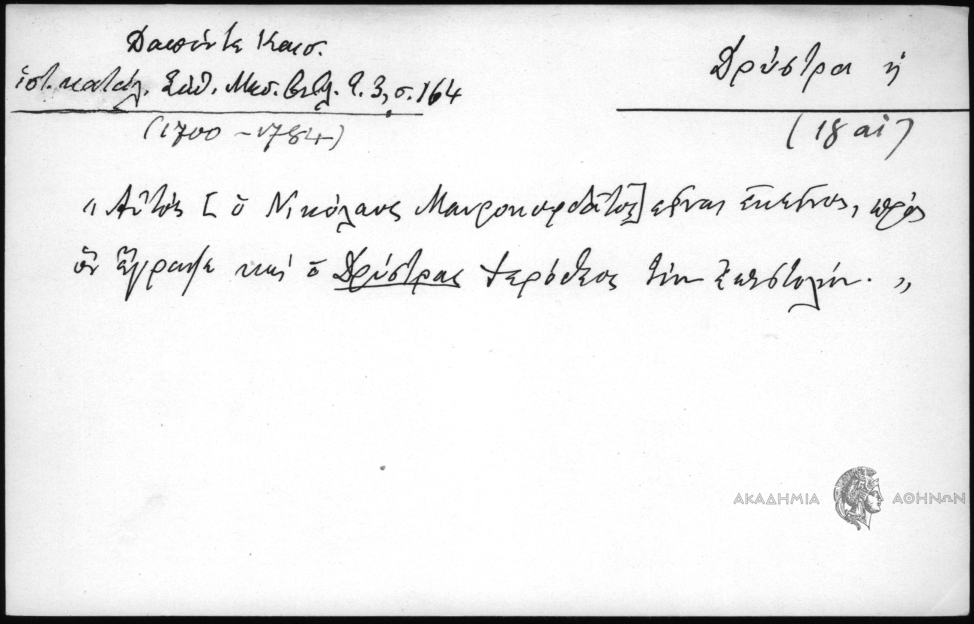 Δαπόντε Καισ.
ἱστ. κατάλ. Σάθ. Μεσ. Βιβλ. τ. 3, σ. 164
(1700 - 1784)
Δρύστρα ἡ
(18 αἰ)
„ Αὐτὸς [ὁ Νικόλαος Μαυροκορδᾶτος] εἶναι ἐκεῖνος, πρὸς
ὃν ἔγραψε καὶ ὁ Δρύστρας Ἱερόθεος τὴν ἐπιστολήν. „
ΑΚΑΔΗΜΙΑ ΑΘΗΝΩΝ